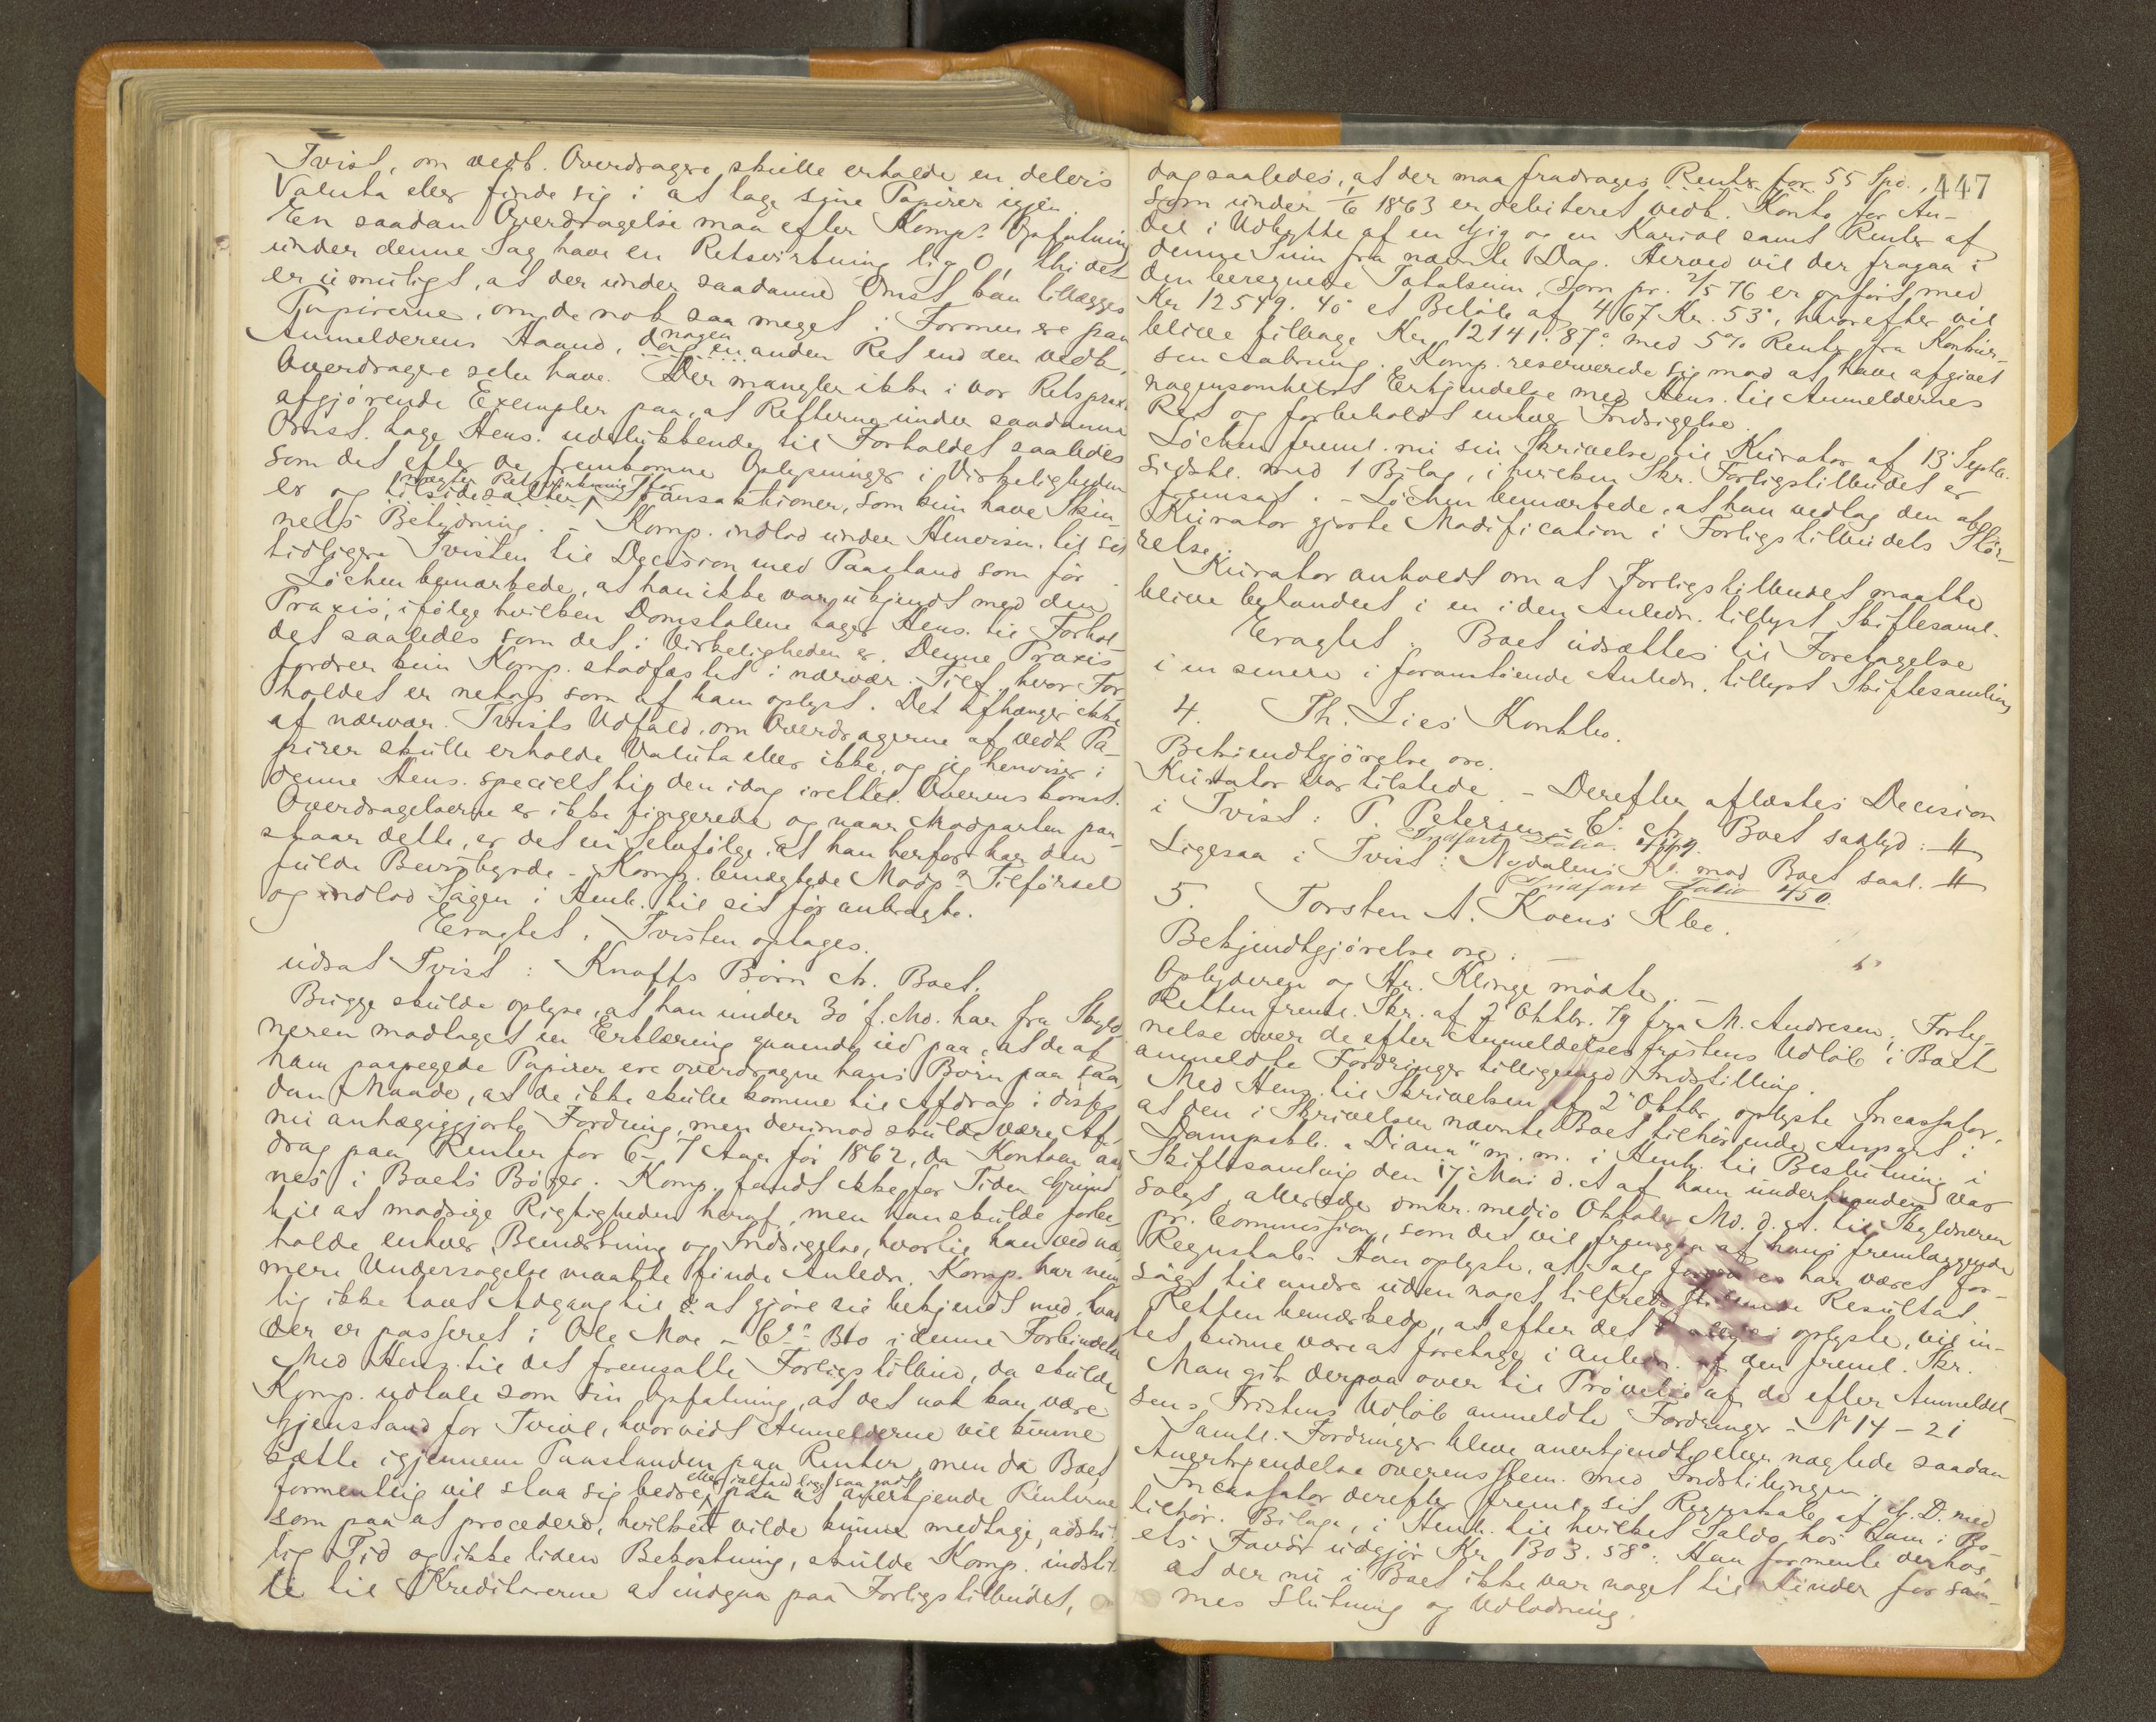 Tvist, om vedk. Overdragere skulle erholde en deleris
Valuta eller finde sig i at tage sine Papirer igjen.
En saadan Overdragelse maa efter Komp.s Opfatning
under denne Sag have en Retsvirkning lig 0, thi det
er umuligt, at der under saadanne Omst. kan tillægges
Papirerne, om de nok saa meget i Formen ere paa
Anmelderens Haand, nogen anden Ret end den vedk.
Overdragere selv have. Der mangler ikke i vor Retspraxis
afgjørende Exempler paa, at Retterne under saadanne
Omst. tage Hens. udelukkende til Forholdet saaledes
som det efter de fremkomne Oplysninger i Virkeligheden
er og nægter Retsvirkning for Transaktioner, som kun have Skin-
nets Betydning. - Komp. indlod under Henvisn. til sit
tidligere Tvisten til Decision med Paastand som før.
Løchen bemærkede, at han ikke var ukjendt med den
Praxis, ifølge hvilken Domstolene tager Hens. til Forhol-
det saaledes som det i Virkeligheden er. Denne Praxis
fordrer kun Komp. stadfæstet i nærvær. Tilf., hvor For-
holdet er netop som af ham oplyst. Det afhænger ikke
af nærvær. Tvists Udfald, om Overdragerne af vedk. Pa-
pirer skulle erholde Valuta eller ikke, og jeg henviser i
denne Hens. specielt til den idag irettel. Overenskomst.
Overdragelserne er ikke fingerede og naar Modparten paa-
staar dette, er det en Selvfølge, at han herfor har den
fulde Bevisbyrde. - Komp. benægtede Modp.s Tilførsel
og indlod Sagen i Henh. til sit før anbragte.
Eragtet. Tvisten optages.
udsat Tvist: Knoffs Børn ctr. Boet.
Brigge skulde oplyse, at han under 30' f. Md. har fra Skyld-
neren modtaget en Erklæring gaaende ud paa, at de af
ham paapegede Papirer ere overdragne hans Børn paa saa-
dan Maade, at de ikke skulle komme til Afdrag i disses
nu anhængiggjorte Fordring, men derimod skulde være Af-
drag paa Renter for 6-7 Aar før 1862, da Kontoen aab-
nes i Boets Bøger. Komp. fandt ikke for Tiden Grund
til at modsige Rigtigheden heraf, men han skulde forbe-
holde enhver Bemærkning og Indsigelse, hvortil han ved næ-
mere Undersøgelse maatte finde Anledn. Komp. har nem-
lig ikke havt Adgang til at gjøre sig bekjendt med, hvad
der er passeret i Ole Moe & Co.s Bo i denne Forbindelse.
Med Hens. til det fremsatte Forligstilbud, da skulde
Komp. udtale som sin Opfatning, at det nok kan være
Gjenstand for Tvivl, hvorvidt Anmelderne vil kunne
sætte igjennem Paastanden paa Renter, men da Boet
formentlig vil staa sig bedre, eller ialfald lige saa godt paa at anerkjende Renterne
som paa at procedere, hvilket vilde kunne medtage adskil-
lig Tid og ikke liden Bekostning, skulde Komp. indstil-
le til Kreditorerne at indgaa paa Forligstilbudet,
447
dog saaledes, at der maa fradrages Renter for 55 Spd.,
som under 1/6 1863 er debiteret vedk. Konto for An-
del i Udbytte af en Gig og en Kariol samt Renter af
denne Sum fra nævnte Dag. Herved vil der fragaa i
den beregnede Totalsum, som pr. 2/5 76 er opført med
Kr 12549. 40° et Beløb af 467 Kr. 53°, hvorefter vil
blive tilbage Kr. 12141. 87° med 5% Rente fra Konkur-
sens Aabning. Komp. reserverede sig mod at have afgivet
nogensomhelst Erkjendelse med Hens. til Anmeldernes
Ret og forbeholdt enhver Indsigelse.
Løchen freml. nu sin Skrivelse til Kurator af 13 Septbr.
sidstl. med 1 Bilag, i hvilken Skr. Forligstilbudet er
fremsat. - Løchen bemærkede, at han vedtog den af
Kurator gjorte Modification i Forligstilbudets Stør-
relse.
Kurator anholdt om at Forligstilbudet maatte
blive behandlet i en i den Anledn. tillyst Skiftesaml.
Eragtet: Boet udsættes til Foretagelse
i en senere i foranstaaende Anledn. tillyst Skiftesamling
4. Th. Lies Konkbo.
Bekjendtgjørelse osv.
Kurator var tilstede. - Derefter aflæstes Decision
i Tvist: P. Petersen & Co. ctr. Boet saalyd: #
Indført Folio 449.
Ligesaa i Tvist: Nydalens Ko. mod Boet saal. #
Indført Folio 450.
5. Torsten A. Koens Kbo.
Bekjendtgjørelse osv. -
Opbyderen og Hr. Klinge mødte. -
Retten freml. Skr. af 2' Oktbr. 79 fra M. Andresen, Forteg-
nelse over de efter Anmeldelsesfristens Udløb i Boet
anmeldte Fordringer tilligemed Indstilling.
Med Hens. til Skrivelsen af 2' Oktbr. oplyste Incassator,
at den i Skrivelsen nævnte Boet tilhørende Anpart i
Dampskb. "Diana" m. m. i Henh. til Beslutning i
Skiftesamling den 17 Mai d. A. af ham underhaanden var
solgt allerede omkr. medio Oktober Md. d. A. til Skyldneren
pr. Commission, som det vil fremgaa af hans fremlæggende
Regnskab. Han oplyste, at Salg har været for-
søgt til andre uden noget tilfredsstillende Resultat.
Retten bemærkede, at efter det oplyste, vil in-
tet kunne være at foretage i Anledn. af den freml. Skr.
Man gik derpaa over til Prøvelse af de efter Anmeldel-
sens Fristens Udløb anmeldte Fordringer - No 14 - 21
Samtl. Fordringer bleve anerkjendte eller nægtede saadan
Anerkjendelse overensstem. med Indstillingen.
Incassator derefter freml. sit Regnskab af d. D. med
tilhør. Bilage, i Henh. til hvilket Saldo hos ham i Bo-
ets Favør udgjør Kr. 1303. 58°. Han formente derhos,
at der nu i Boet ikke var noget til Hinder for sam-
mes Slutning og Udlodning.